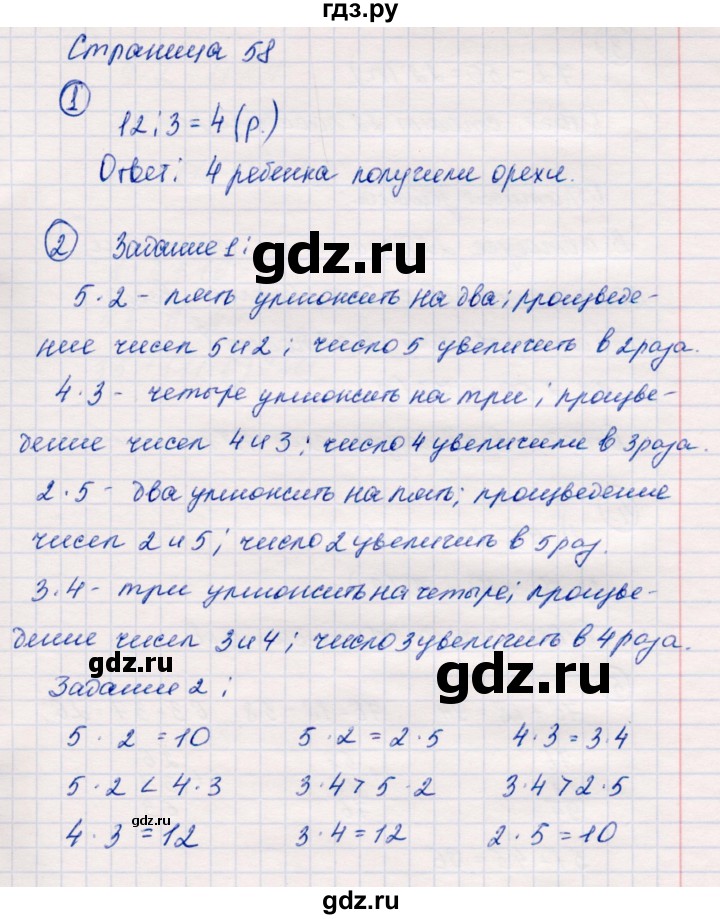 гдз.ру
Страница 58
1
12:3=4 (р.)
Ответ: 4 ребенка получили орехи.
2 Задание 1:
gdz.ru
5·2 – пять умножить на два; произведе-
ние чисел 5 и 2; число 5 увеличить в 2 раза.
4·3 – четыре умножить на три; произве-
дение чисел 4 и 3; число 4 увеличили в 3 раза.
2·5 – два умножить на пять; произведение
чисел 2 и 5; число 2 увеличить в 5 раз.
3·4 – три умножить на четыре; произве-
дение чисел 3 и 4; число 3 увеличить в 4 раза.
gdz.ru
gdz.ru
Задание 2:
5·2=10 5·2=2·5 4·3=3·4
5·2<4·3 3·4>5·2 3·4>2·5
gdz.ru
4·3=12 3·4=12 2·5=10
gdz.ru